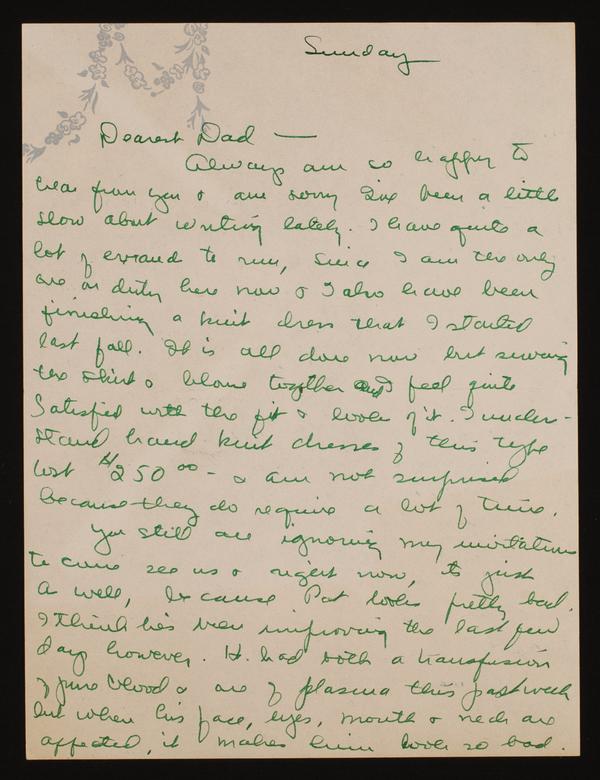 Sunday
Dearest Dad —
Always am so happy to
hear from you & am sorry I've been a little
slow about writing lately. I have quite a
lot of errands to run, since I am the only
one on duty here now & I also have been
finishing a knit dress that I started
last fall. It is all done now but sewing
the skirt & blouse together and I feel quite
satisfied with the fit & look of it. I under-
stand hand knit dresses of this type
cost $250.00 - & am not surprised
because they do require a lot of time.
You still are ignoring my invitations
to come see us & right now, it's just
as well, because Pat looks pretty bad.
I think he's been improving the last few
days however. He had both a transfusion
of pure blood & one of plasma this past week
but when his face, eyes, mouth & neck are
affected, it makes him look so bad.